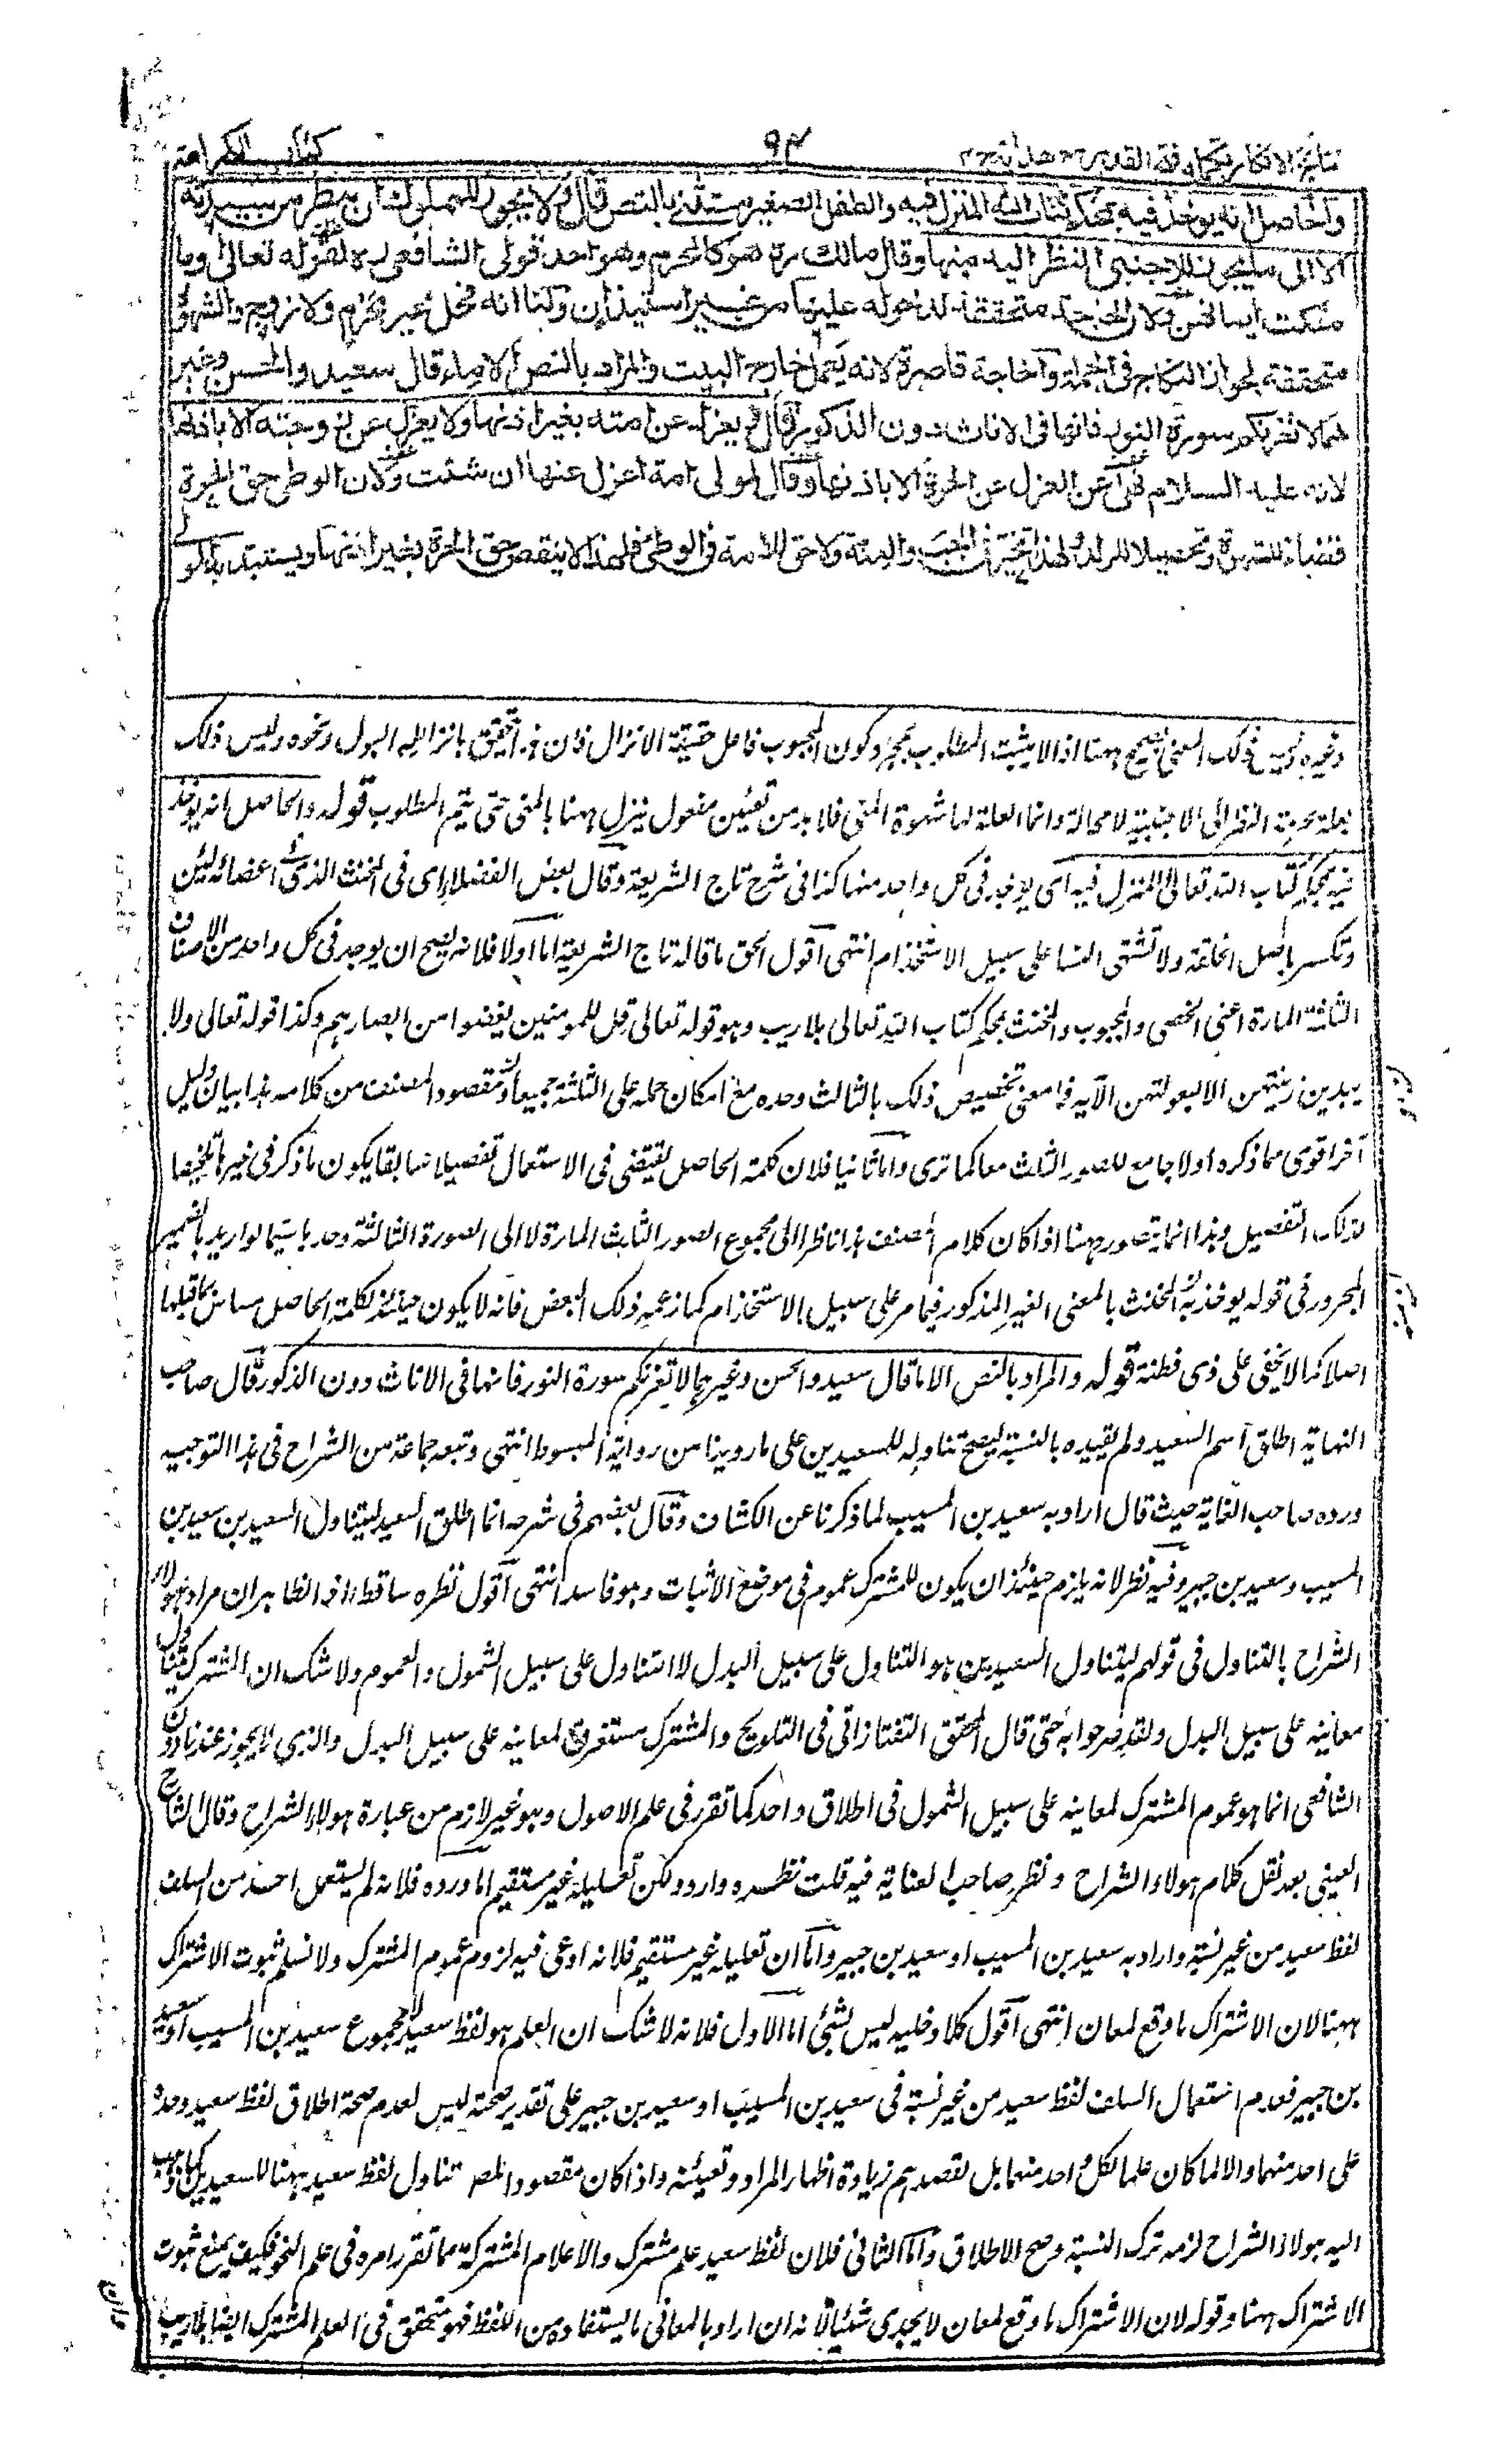 نتائج الافكار تكملة فتح القدير مع هداية ج ٤
٩٤
كتاب الكراهية
والحاصل انه يؤخذ فيه بمحكم كتاب الله المنزل فيه والطفل الصغير مستثنى بالنص قال ولا يجوز للمملوك ان ينظر من سيدته
الا الى ما يجوز للاجنبي النظر اليه منها وقال مالك رح هو كالمحرم وهو احد قولي الشافعي رح لقوله تعالى او ما
ملكت ايمانهن ولان الحاجة متحققة لدخوله عليها من غير استيذان ولنا انه فحل غير محرم ولا زوج والشهوة
متحققة لجواز النكاح في الجملة والحاجة قاصرة لانه يعمل خارج البيت والمراد بالنص الاماء قال سعيد والحسن وغير
هما لا تغرنكم سورة النور فانها في الاناث دون الذكور قال ويعزل عن امته بغير اذنها ولا يعزل عن زوجته الا باذنها
لانه عليه السلام نهى عن العزل عن الحرة الا باذنها وقال لمولى امة اعزل عنها ان شئت ولان الوطي حق الحرة
قضاء للشهوة وتحصيلا للولد ولهذا تخير في الجب والعنة ولا حق للامة في الوطي فلهذا لا ينقص حق الحرة بغير اذنها ويستبد به المولى
وغيره ليس ذلك المعنى بصحيح ههنا اذ لا يثبت المطلوب بمجرد كون المجبوب فاعل حقيقة الانزال فان ذا يتحقق بانزال البول ونحوه وليس ذلك
بعلة حرمة النظر الى الاجنبية لا محالة وانما العلة لها شهوة المنى فلا بد من تعيين مفعول ينزل ههنا بالمنى حتى يتم المطلوب قوله والحاصل انه يؤخذ
فيه بمحكم كتاب الله تعالى المنزل فيه اي يؤخذ في كل واحد منها كذا في شرح تاج الشريعة وقال بعض الفضلاء اي في المخنث الذي في اعضائه لين
وتكسر باصل الخلقة ولا تشتهي النساء على سبيل الاستخدام انتهى اقول الحق ما قاله تاج الشريعة اما اولا فلانه يصح ان يوجد في كل واحد من الاصناف
الثلثة المارة اعني الخصي والمجبوب والمخنث بمحكم كتاب الله تعالى بلا ريب وهو قوله تعالى قل للمومنين يغضوا من ابصارهم وكذا قوله تعالى ولا
يبدين زينتهن الا لبعولتهن الآية فما معنى تخصيص ذلك بالثالث وحده مع امكان حمله على الثلثة جميعا ومقصود المصنف من كلامه هذا بيان دليل
آخر اقوى مما ذكره اولا جامع للصور الثلث معا كما ترى واما ثانيا فلان كلمة الحاصل تقتضي في الاستعمال تفصيلا سابقا يكون ما ذكر في خيرها تلخيصا
لذلك التفصيل وهذا انما يتصور ههنا اذا كان كلام المصنف هذا ناظرا الى مجموع الصور الثلث المارة لا الى الصورة الثالثة وحدها سيما لو اريد بالضمير
المجرور في قوله يؤخذ به المخنث بالمعنى الغير المذكور فيما مر على سبيل الاستخدام كما زعمه ذلك البعض فانه لا يكون حينئذ لكلمة الحاصل مساس بما قبلها
اصلا كما لا يخفى على ذي فطنة قوله والمراد بالنص الاماء قال سعيد والحسن وغيرهما لا تغرنكم سورة النور فانها في الاناث دون الذكور قال صاحب
النهاية اطلق اسم السعيد ولم يقيده بالنسبة ليصح تناوله للسعيدين على ما روينا من رواية المبسوط انتهى وتبعه جماعة من الشراح في هذا التوجيه
ورده صاحب الغاية حيث قال اراد به سعيد بن المسيب لما ذكرنا عن الكشاف وقال بعضهم في شرحه انما اطلق السعيد ليتناول السعيدين سعيد بن
المسيب وسعيد بن جبير وفيه نظر لانه يلزم حينئذ ان يكون للمشترك عموم في موضع الاثبات وهو فاسد انتهى اقول نظره ساقط اذ الظاهر ان مراد هولاء
الشراح بالتناول في قولهم ليتناول السعيدين هو التناول على سبيل البدل لا التناول على سبيل الشمول والعموم ولا شك ان المشترك يتناول
معانيه على سبيل البدل ولقد صرحوا به حتى قال المحقق التفتازاني في التلويح والمشترك مستغرق لمعانيه على سبيل البدل والذي لا يجوز عندنا دون
الشافعي انما هو عموم المشترك لمعانيه على سبيل الشمول في اطلاق واحد كما تقرر في علم الاصول وهو غير لازم من عبارة هولاء الشراح وقال الشارح
العيني بعد نقل كلام هولاء الشراح ونظر صاحب العناية فيه قلت نظره وارد ولكن تعليله غير مستقيم اما وروده فلانه لم يستعمل احد من السلف
لفظ سعيد من غير نسبة واراد به سعيد بن المسيب او سعيد بن جبير واما ان تعليله غير مستقيم فلانه ادعى فيه لزوم عموم المشترك ولا نسلم ثبوت الاشتراك
ههنا لان الاشتراك ما وقع لمعان انتهى اقول كلا دخليه ليس بشئ اما الاول فلانه لا شك ان العلم هو لفظ سعيد لا مجموع سعيد بن المسيب او سعيد
بن جبير فعدم استعمال السلف لفظ سعيد من غير نسبة في سعيد بن المسيب او سعيد بن جبير على تقدير صحته ليس لعدم صحة اطلاق لفظ سعيد وحده
على احد منهما والا لما كان علما لكل واحد منهما بل لقصدهم زيادة اظهار المراد وتعيينه واذا كان مقصود المص تناول لفظ سعيد ههنا للسعيدين كما ذهب
اليه هولاء الشراح لزمه ترك النسبة وصح الاطلاق واما الثاني فلان لفظ سعيد علم مشترك والاعلام المشتركة مما تقرر امره في علم النحو فكيف يمنع ثبوت
الاشتراك ههنا وقوله لان الاشتراك ما وقع لمعان لا يجدي شيئا لانه ان اراد بالمعاني ما يستفاد من اللفظ فهو متحقق في العلم المشترك ايضا بلا ريب